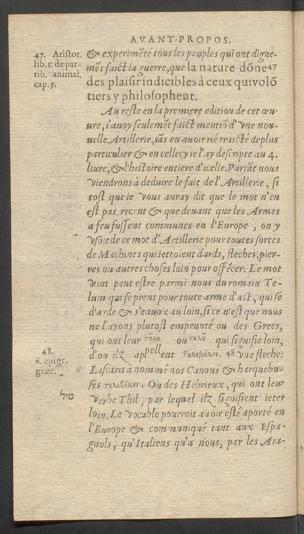 AVANT-PROPOS.
47. Aristot.
lib. 1. de par-
tib. animal.
cap. 5.
& experimẽté tous les peuples qui ont digne-
mẽt faict la guerre, que la nature dõne 47
des plaisir indicibles à ceux qui volõ
tiers y philosophent.
Au reste en la premiere edition de cet œu-
ure, i'auoy seulemẽt faict mentiõ d'vne nou-
uelle Artillerie, sãs en auoir né traicté de plus
particulier & en cellecy ie l'ay descripte au 4.
liure, & l'histoire entiere d'icelle. Partãt nous
viendrons à deduire le fait de l'Artillerie, si
tost que ie vous auray dit que le mot n'en
est pas recent & que deuant que les Armes
a feu fussent communes en l'Europe, on y
vsoit de ce mot d'Artillerie pour toutes sortes
de Machines qui iettoient dards, fleches, pier-
res ou autres choses loin pour offẽcer. Le mot
vint peut estre parmi nous du romain Te-
lum qui se prent pour toute arme d'ast, qui se
d'arde & s'enuoie au loin, si ce n'est que nous
ne l'ayons plutost emprunté ou des Grecs,
qui ont leur ou qui signifie loin,
48.
6. epigr.
græc.
d'ou ilz appellent 48. vne fleche:
Lascaris à nommé nos Canons & harquebu-
ses Ou des Hebrieux, qui ont leur
verbe Thil, par lequel ilz signifient ieter
loin. Le vocable pourroit auoir esté aporté en
l'Europe & cõmuniqué tant aux Espa-
gnols, qu'Italiens qu'a nous, par les Ara-